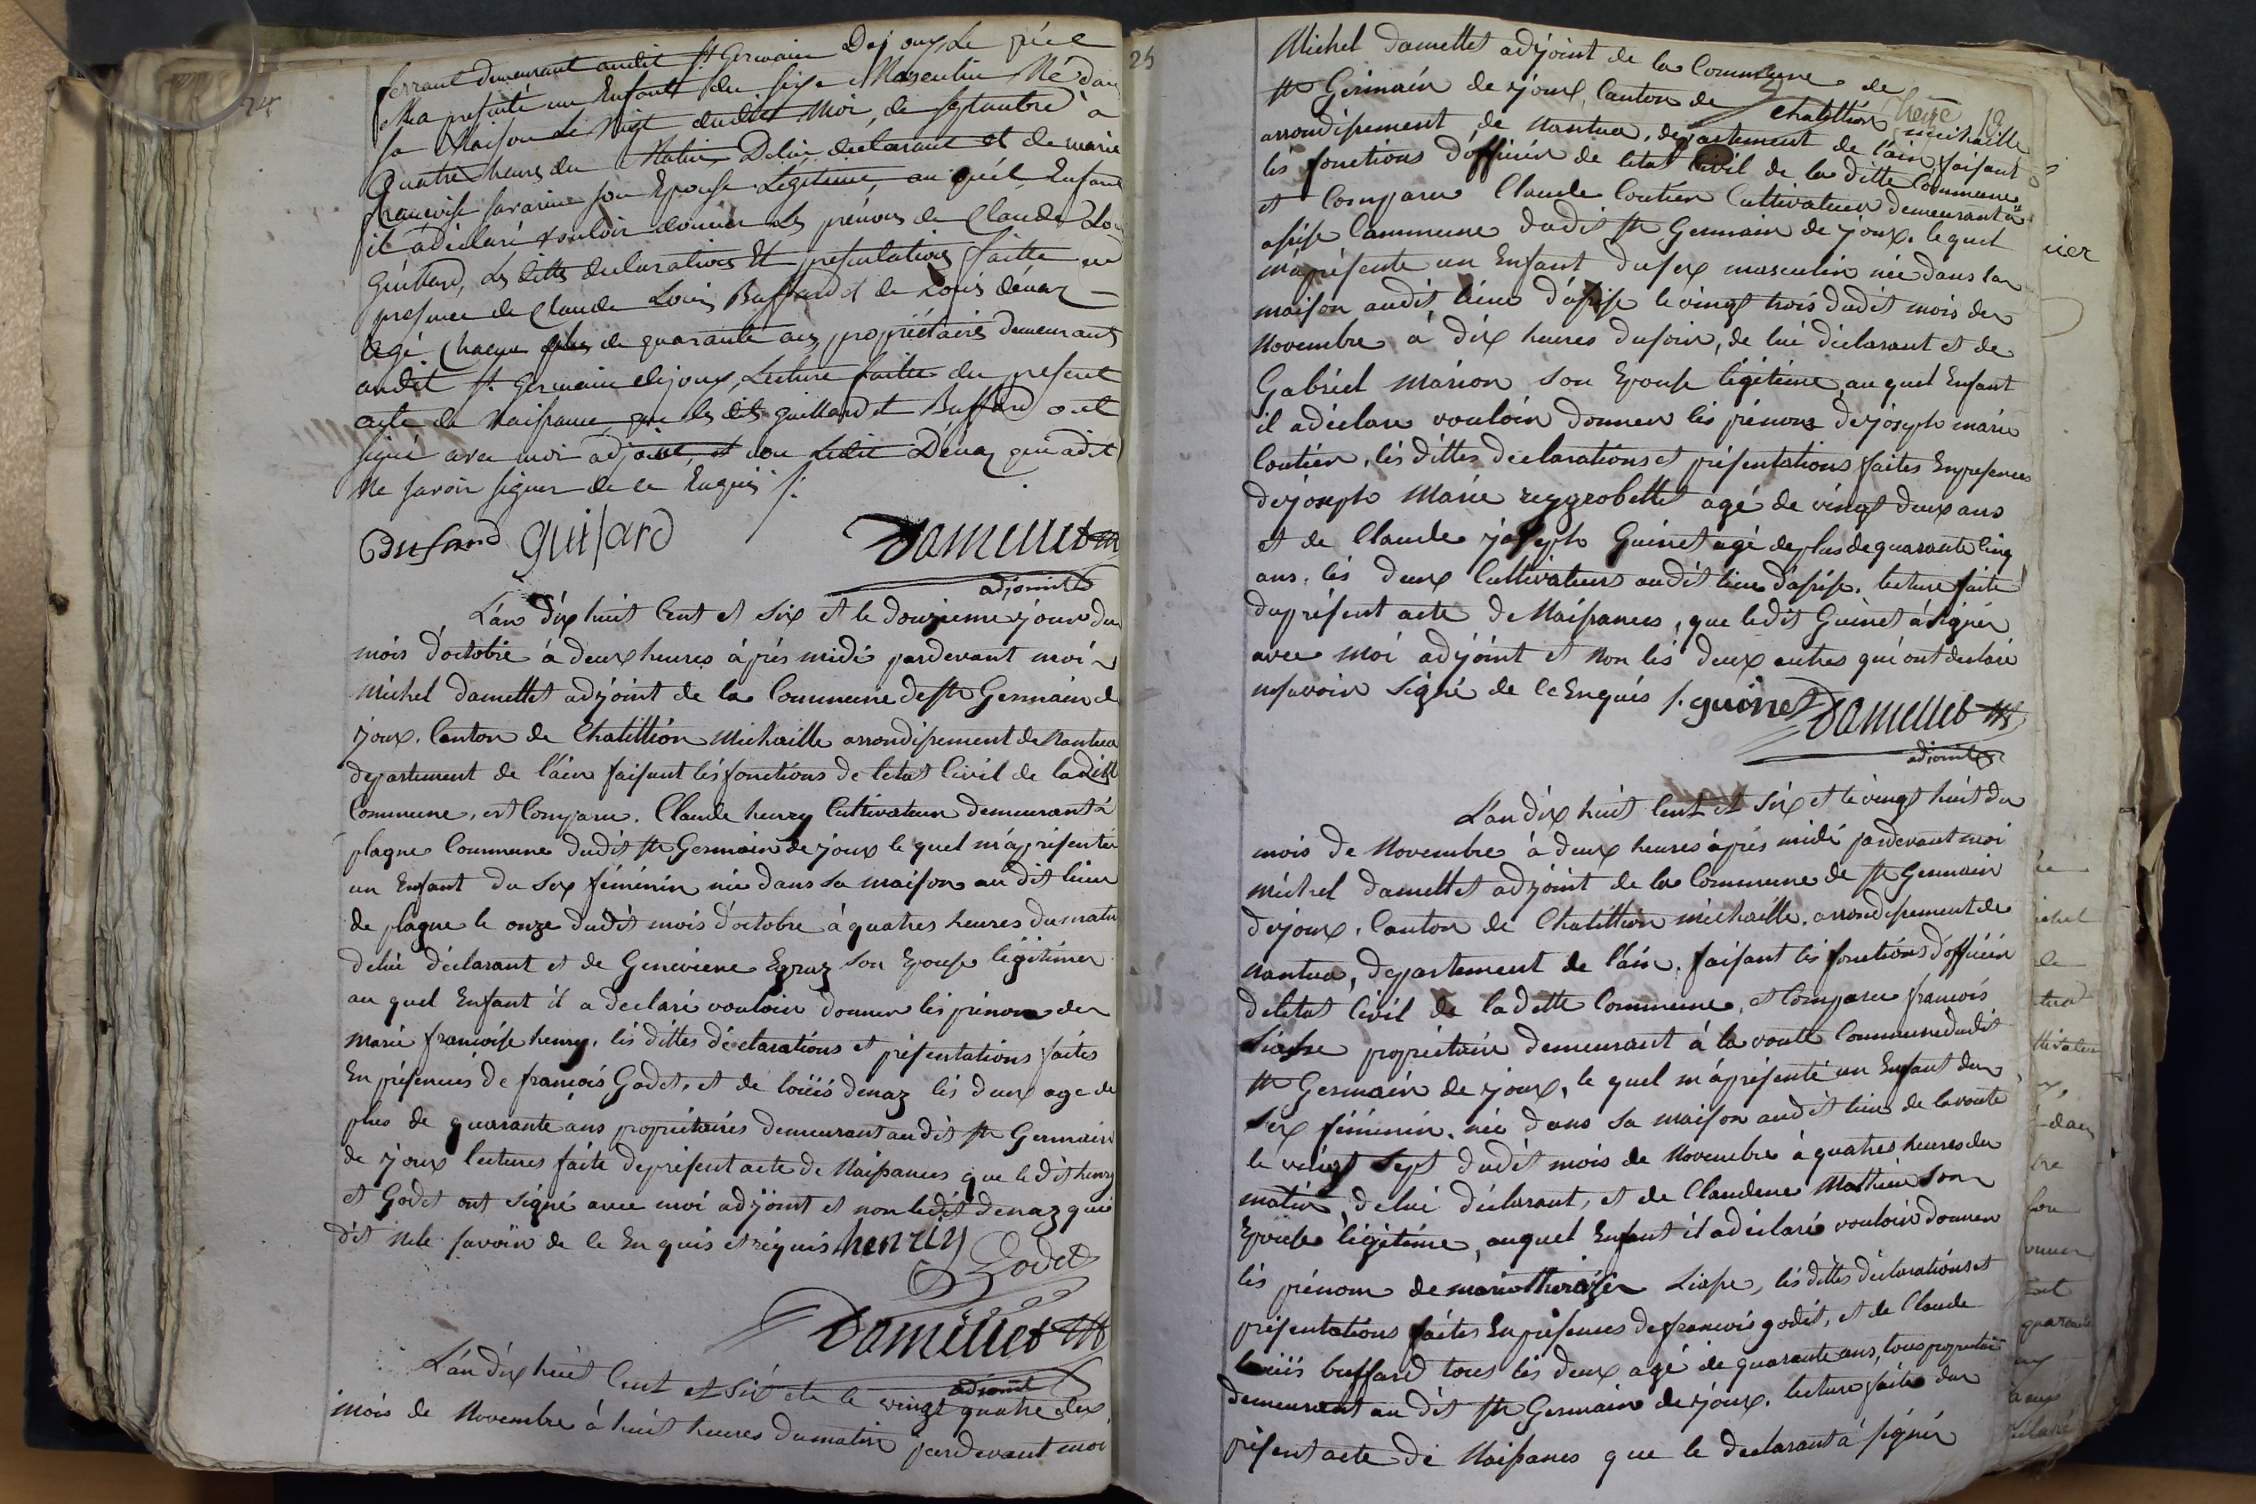 ferrant demeurant audit St Germain Dejoux Le quel
Ma presenté un Enfant du Sexe Masculin Né dans
sa Maison Le Vingt dudit Moi, de septambre à
Quatre heures du Matin, De lui déclarant et de marie
Francoise savarine son Epouse Légitime, au quel Enfant
il a déclaré vouloir donner les prénoms de Claude Louis
les dittes declarations Et presentations faitte en
presence de Claude Louis Buffard et de Louis dénaz
Agé Chacun plus de quarante ans propriétaires demeurants
audit St Germain dejoux, Lecture faitte du present
acte de Naissance, que les dits guillard et Buffard ont
signé avec moi adjoint, et non Ledit Dénaz qui a dit
Ne savoir signer de ce Enquis /.
Buffard guilard Damellet m
adjoint
L'an dix huit Cent et Six et le douzieme jour du
mois d'octobre à deux heures àprés midi pardevant moi
Michel damettet adjoint de la Commune de St Germain de
joux. Canton de Chatillion Michaille arrondissement de Nantua
departement de l'ain faisant lés fonctions de letat Civil de ladite
Commune, est Comparu. Claude henry Cultivateur demeurant à
plagne Commune dudit St Germain de joux le quel m'a présenté
un Enfant du Sex féminin née dans sa maison au dit lieu
de plagne le onze dudit mois d'octobre à quatres heures du matin
de lui déclarant et de Genevieve Egraz son Epouse légitimee
au quel Enfant il a declaré vouloir donner lés prénoms de
Marie francoise henry, lés dittes déclarations et présentations faites
En présences de francois Godet, et de loüis denaz lés deux age de
plus de quarante ans propriétaires demeurant au dit St Germain
de joux lectures faite de présent acte de Naissances que ledit henry
et Godet ont signé avec moi adjoint et non ledit denaz qui
dit nele savoir de ce Enquis et requis henriy
Godet
Damellet m
adjoint
L'an dix huit Cent et Six et le vingt quatre du
mois de Novembre à huit heures du matin pardevant moi
25
Michel damettet adjoint de la Commune de
St Germain de joux, Canton de Chatillion michaille
arrondissement de Nantua, departement de l'ain, faisant
lés fonctions d'officiér de letat Civil de la ditte Commune
et Comparu Claude Coutiér Cultivateur demeurant à
Commune dudit St Germain de joux. lequel
m'a présente un Enfant du sex masculin née dans la
maison audit lieu le vingt trois dudit mois de
Novembre à dix heures du soir, de lui déclarant et de
Gabriel Marion Son Epouse légitime au quel Enfant
il a déclare vouloir donner lés prénoms de joseph marie
Coutiér, lés dittes déclarations et présentations faites En presences
de joseph Marie agé de vingt deux ans
et de Claude joseph Guinet agé de plus de quarante Cinq
ans. lés deux Cultivateurs audit lieu lecture faite
du présent acte de Naissances, que ledit Guinet a signér
avec moi adjoint et non lés deux autres qui ont declaré
ne savoir signé de ce Enquis /. guinet Damellet m
adjoint
L'an dix huit Cent et Six et le vingt huit du
mois de Novembre à deux heures àprés midi pardevant moi
Michel damettet adjoint de la Commune de St Germain
de joux, Canton de Chatillion michaille. arrondissement de
Nantua, departement de l'ain, faisant lés fonctions d'officiér
de letat Civil de ladette Commune, et Comparu francois
propriétaire demeurant à la voute Commune dudit
St Germain de joux, le quel m'a présenté un Enfant du
Sex féminin, née dans Sa maison audit lieu de la voute
le vingt Sept dudit mois de Novembre à quatres heures du
matin, de lui déclarant, et de Claudine Mathieu Son
Epouse légitime, auquel Enfant il a déclaré vouloir donner
lés prénom de marie lés dittes déclarations et
présentations faites En présences de francois godet, et de Claude
loüis buffard tous lés deux agé de quarante ans, tous propriétaires
demeurant au dit St Germain de joux. lecture faite du
présent acte de Naissances que le declarant a signér